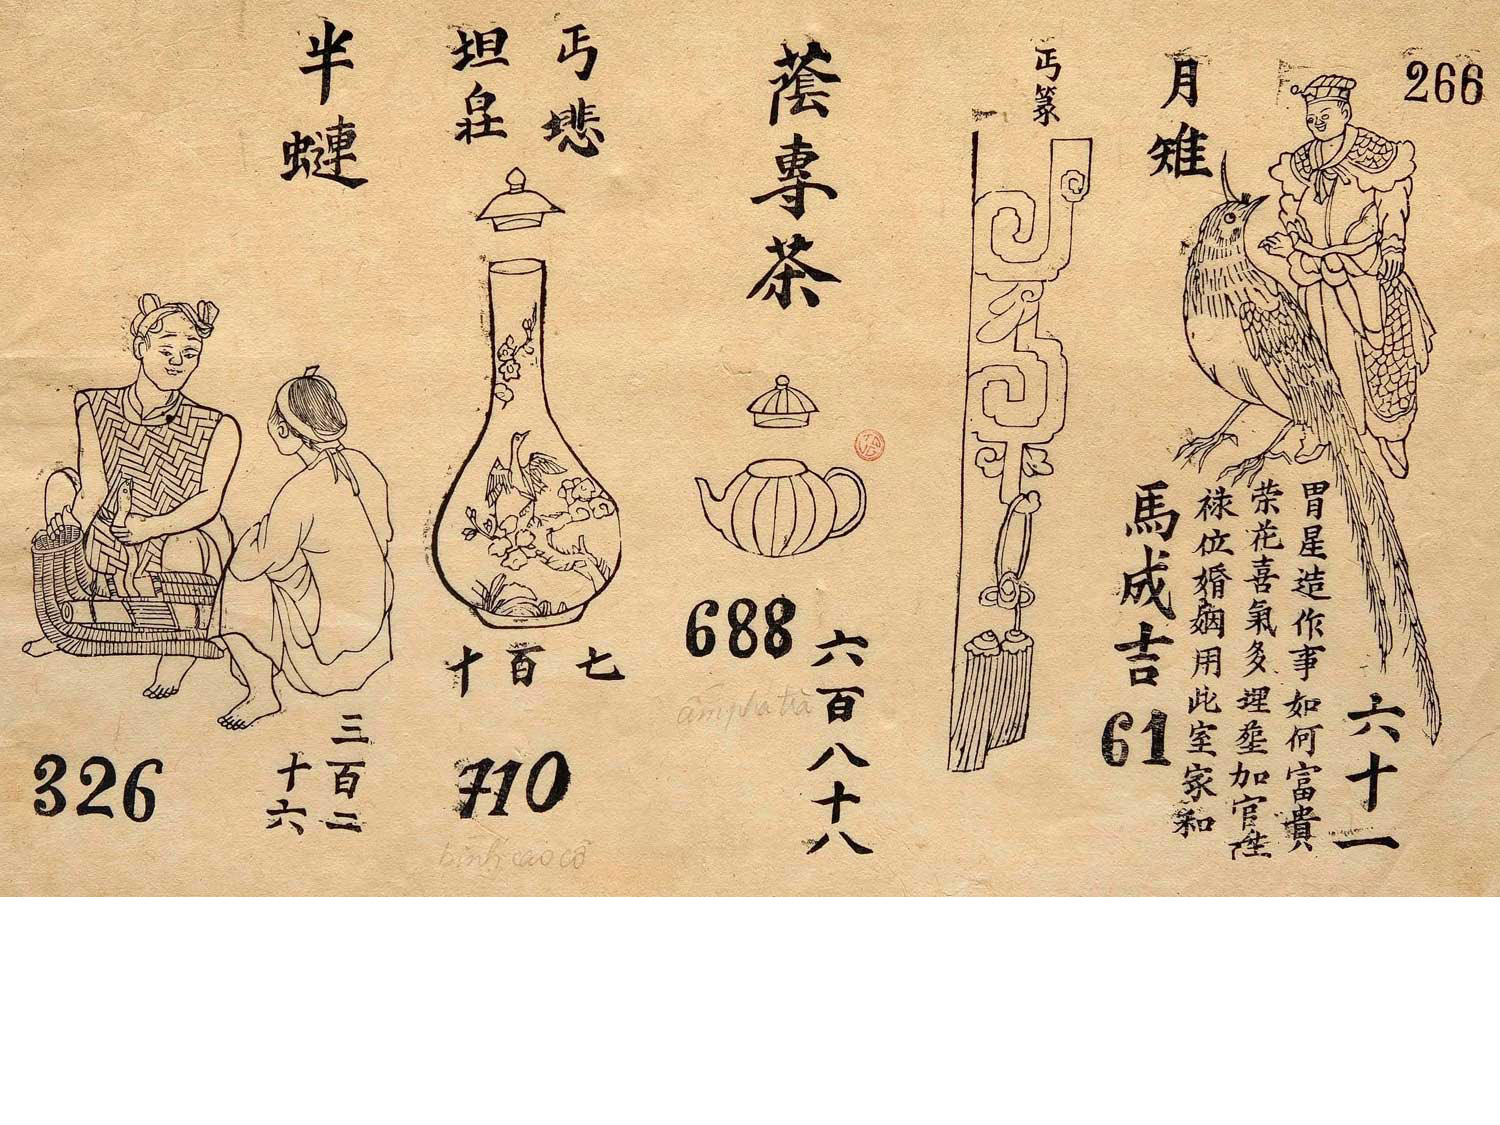 266
月雉
六十一
胃星造作事如何富貴
荣花喜氣多埋塟加官陞
禄位婚姻用此室家和
馬成吉
61
丐篆
蔭專茶
688
六百八十八
ấm pha trà
丐
坦
七百十
710
bình cao cổ
半𧋽
三百二
十六
326